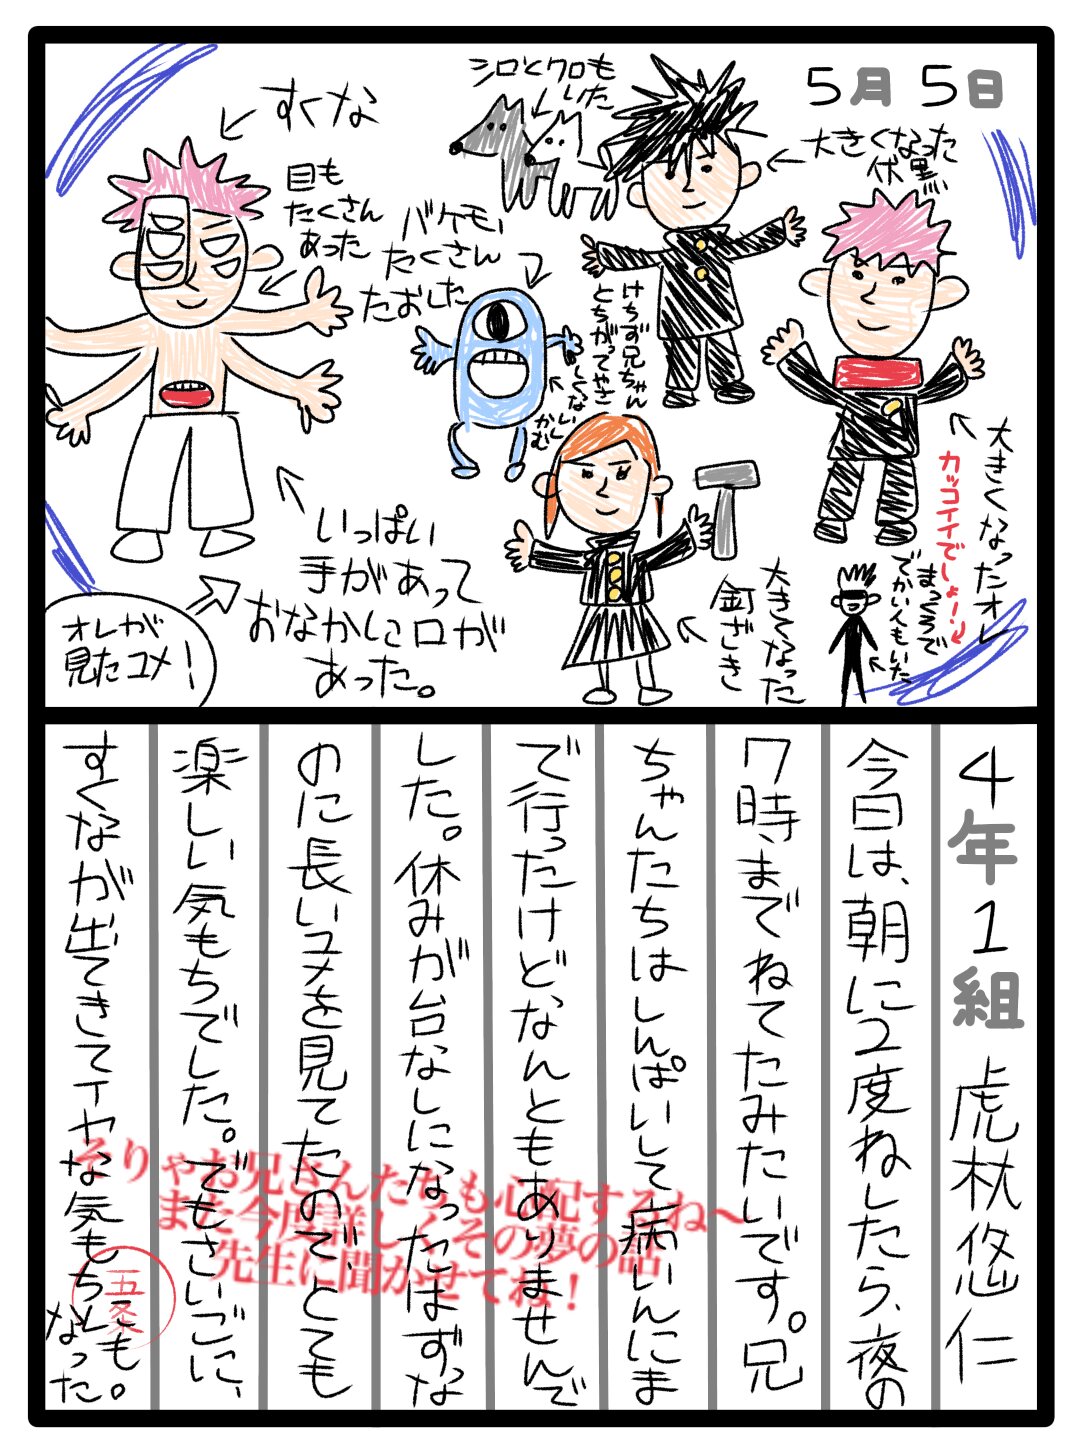 5月5日
大きくなった
伏黒
シロとクロも
いた
すくな
目も
たくさん
あった
バケモノ
たくさん
たおした
けちず兄ちゃん
とちがってやさ
しくないし
かむ
大きくなったオレ
カッコイイでしょ！
まっくろで
でかい人もいた
大きくなった
釘ざき
いっぱい
手があって
おなかに口が
あった。
オレが
見たユメ！
4年1組 虎杖悠仁
今日は、朝に2度ねしたら、夜の
7時までねてたみたいです。兄
ちゃんたちはしんぱいして病いんにま
で行ったけど、なんともありませんで
した。休みが台なしになったはずな
のに長いユメを見てたのでとても
楽しい気もちでした。でもさいごに、
すくなが出てきてイヤな気もちにも
なった。
そりゃお兄さんたちも心配するね〜
また今度詳しくその夢の話
先生に聞かせてね！
五条